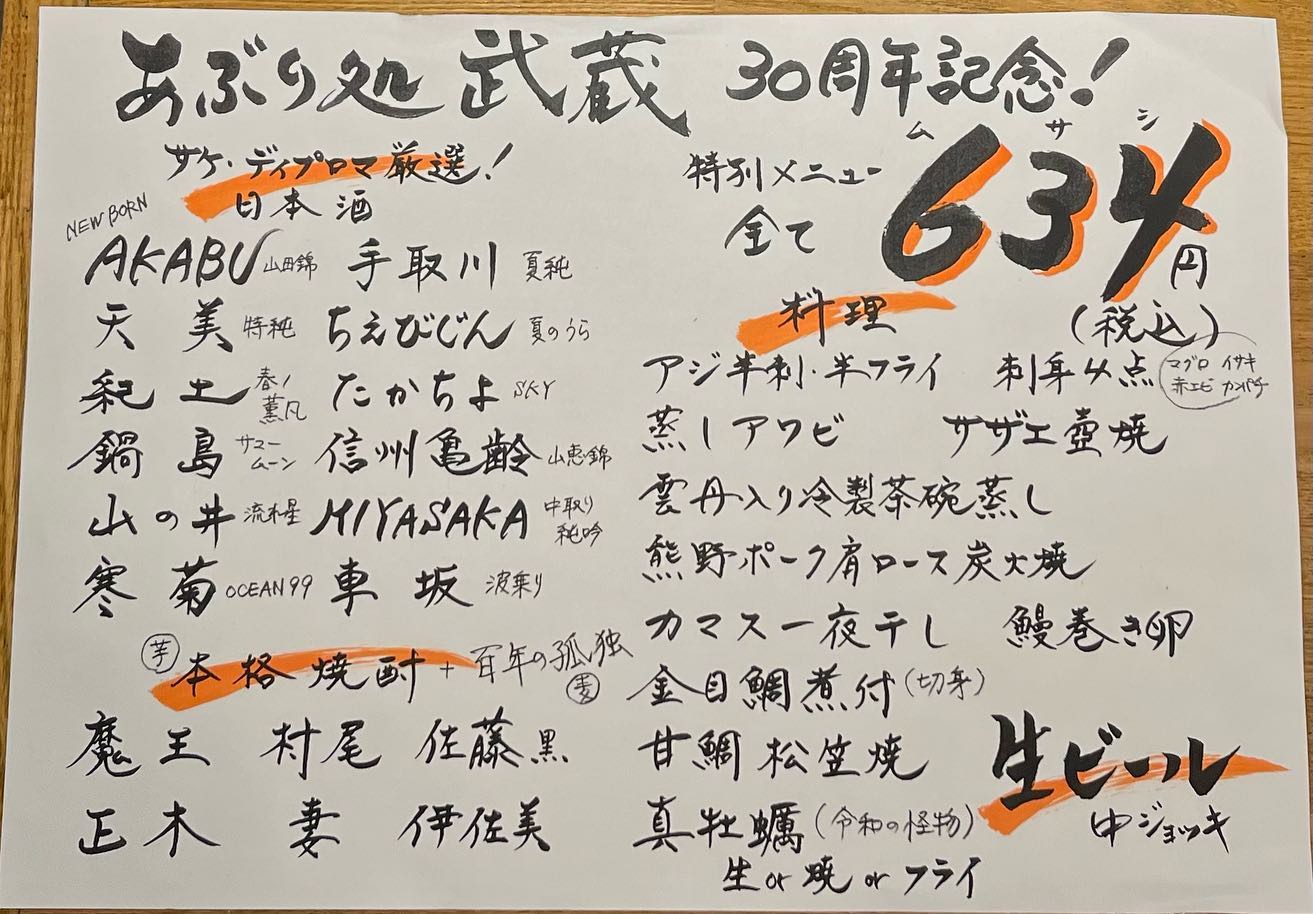 あぶり処 武蔵 30周年記念!
サケ・ディプロマ厳選!
日本酒
NEW BORN
AKABU 山田錦 手取川 夏純
天美 特純 ちえびじん 夏のうら
紀土 春ノ薫風 たかちよ SKY
鍋島 サマームーン 信州亀齢 山恵錦
山の井 流れ星 MIYASAKA 中取り純吟
寒菊 OCEAN99 車坂 波乗り
芋 本格焼酎 + 百年の孤独 麦
魔王 村尾 佐藤黒
正木 妻 伊佐美
特別メニュー
全て
ムサシ
634円
(税込)
料理
アジ半刺・半フライ 刺身4点 マグロ イサキ 赤エビ カンパチ
蒸しアワビ サザエ壺焼
雲丹入り冷製茶碗蒸し
熊野ポーク肩ロース炭火焼
カマス一夜干し 鰻巻き卵
金目鯛煮付(切身)
甘鯛松笠焼
真牡蠣(令和の怪物)
生or焼orフライ
生ビール
中ジョッキ